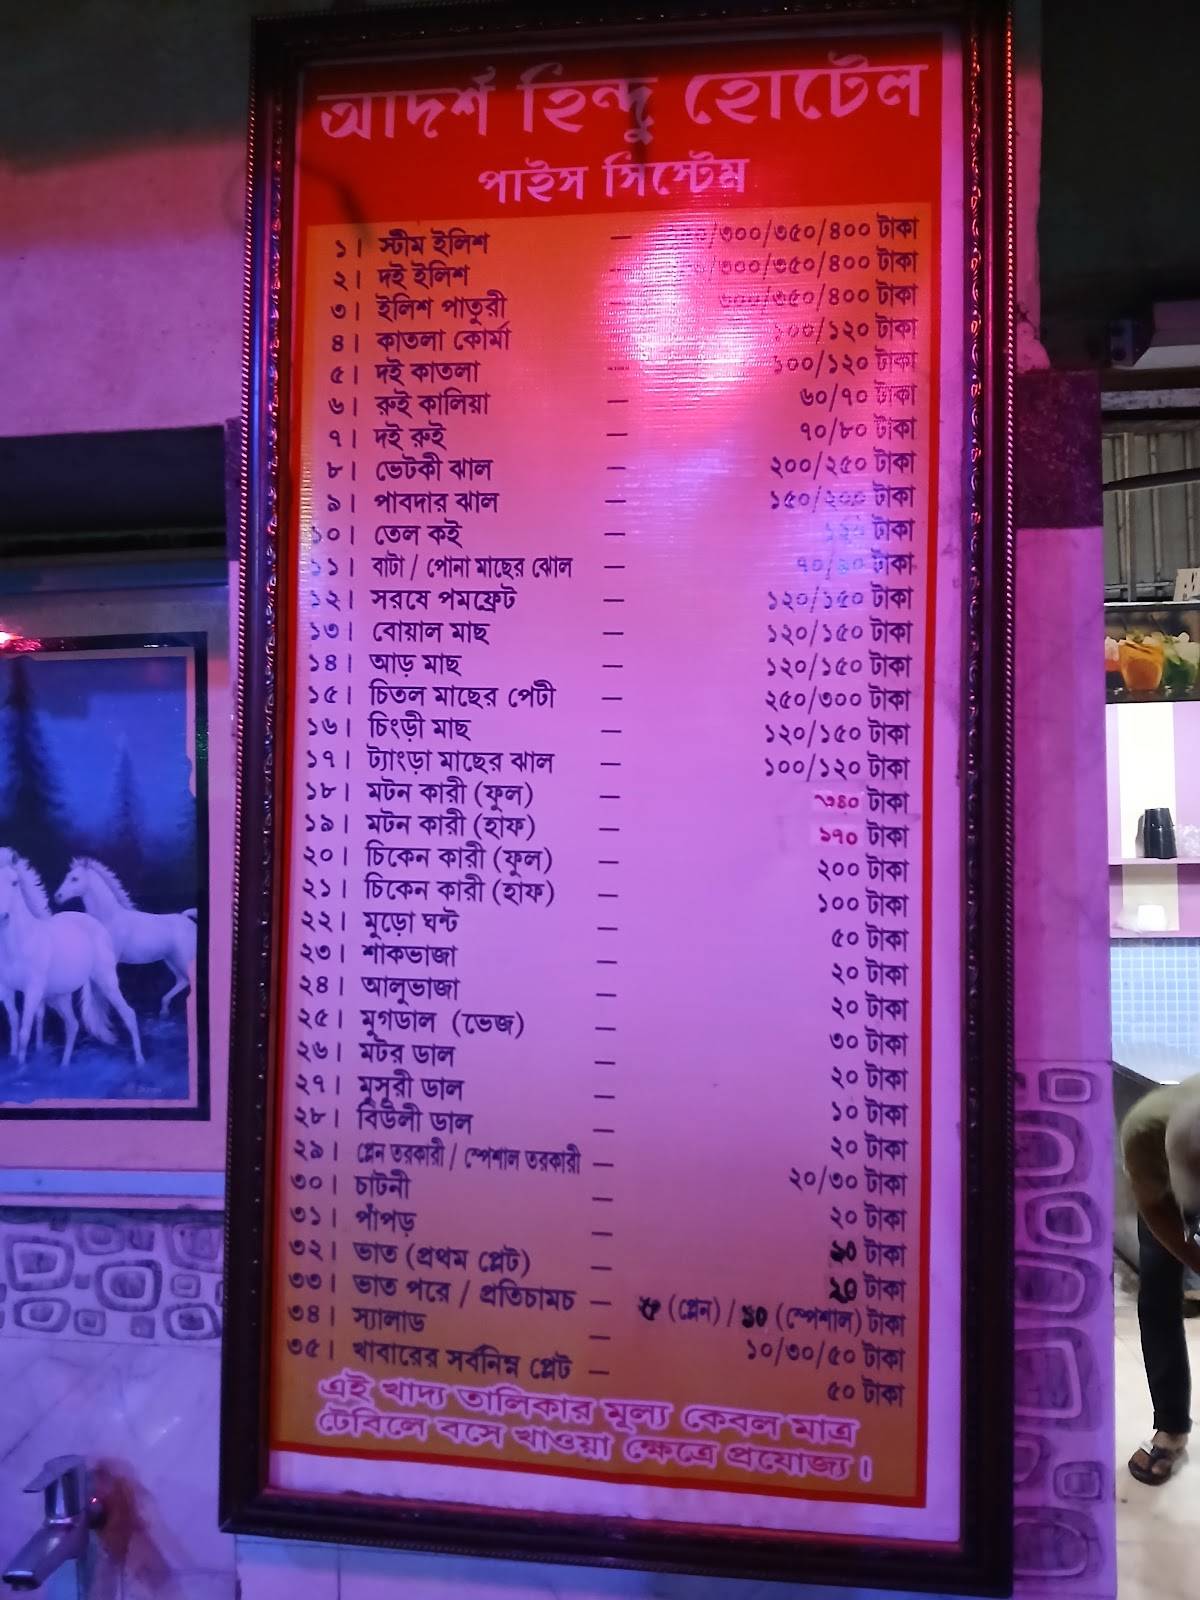 আদর্শ হিন্দু হোটেল
পাইস সিস্টেম
১। স্টীম ইলিশ — /৩০০/৩৫০/৪০০ টাকা
২। দই ইলিশ — /৩০০/৩৫০/৪০০ টাকা
৩। ইলিশ পাতুরী — ৩০০/৩৫০/৪০০ টাকা
৪। কাতলা কোর্মা — ১০০/১২০ টাকা
৫। দই কাতলা — ১০০/১২০ টাকা
৬। রুই কালিয়া — ৬০/৭০ টাকা
৭। দই রুই — ৭০/৮০ টাকা
৮। ভেটকী ঝাল — ২০০/২৫০ টাকা
৯। পাবদার ঝাল — ১৫০/২০০ টাকা
১০। তেল কই — টাকা
১১। বাটা / পোনা মাছের ঝোল — ৭০/ টাকা
১২। সরষে পমফ্রেট — ১২০/১৫০ টাকা
১৩। বোয়াল মাছ — ১২০/১৫০ টাকা
১৪। আড় মাছ — ১২০/১৫০ টাকা
১৫। চিতল মাছের পেটী — ২৫০/৩০০ টাকা
১৬। চিংড়ী মাছ — ১২০/১৫০ টাকা
১৭। ট্যাংড়া মাছের ঝাল — ১০০/১২০ টাকা
১৮। মটন কারী (ফুল) — ৩৪০ টাকা
১৯। মটন কারী (হাফ) — ১৭০ টাকা
২০। চিকেন কারী (ফুল) — ২০০ টাকা
২১। চিকেন কারী (হাফ) — ১০০ টাকা
২২। মুড়ো ঘন্ট — ৫০ টাকা
২৩। শাকভাজা — ২০ টাকা
২৪। আলুভাজা — ২০ টাকা
২৫। মুগডাল (ভেজ) — ৩০ টাকা
২৬। মটর ডাল — ২০ টাকা
২৭। মুসুরী ডাল — ১০ টাকা
২৮। বিউলী ডাল — ২০ টাকা
২৯। প্লেন তরকারী / স্পেশাল তরকারী — ২০/৩০ টাকা
৩০। চাটনী — ২০ টাকা
৩১। পাঁপড় — ১০ টাকা
৩২। ভাত (প্রথম প্লেট) — ২০ টাকা
৩৩। ভাত পরে / প্রতিচামচ — ৫ (প্লেন) / ১০ (স্পেশাল) টাকা
৩৪। স্যালাড — ১০/৩০/৫০ টাকা
৩৫। খাবারের সর্বনিম্ন প্লেট — ৫০ টাকা
এই খাদ্য তালিকার মূল্য কেবল মাত্র
টেবিলে বসে খাওয়া ক্ষেত্রে প্রযোজ্য।